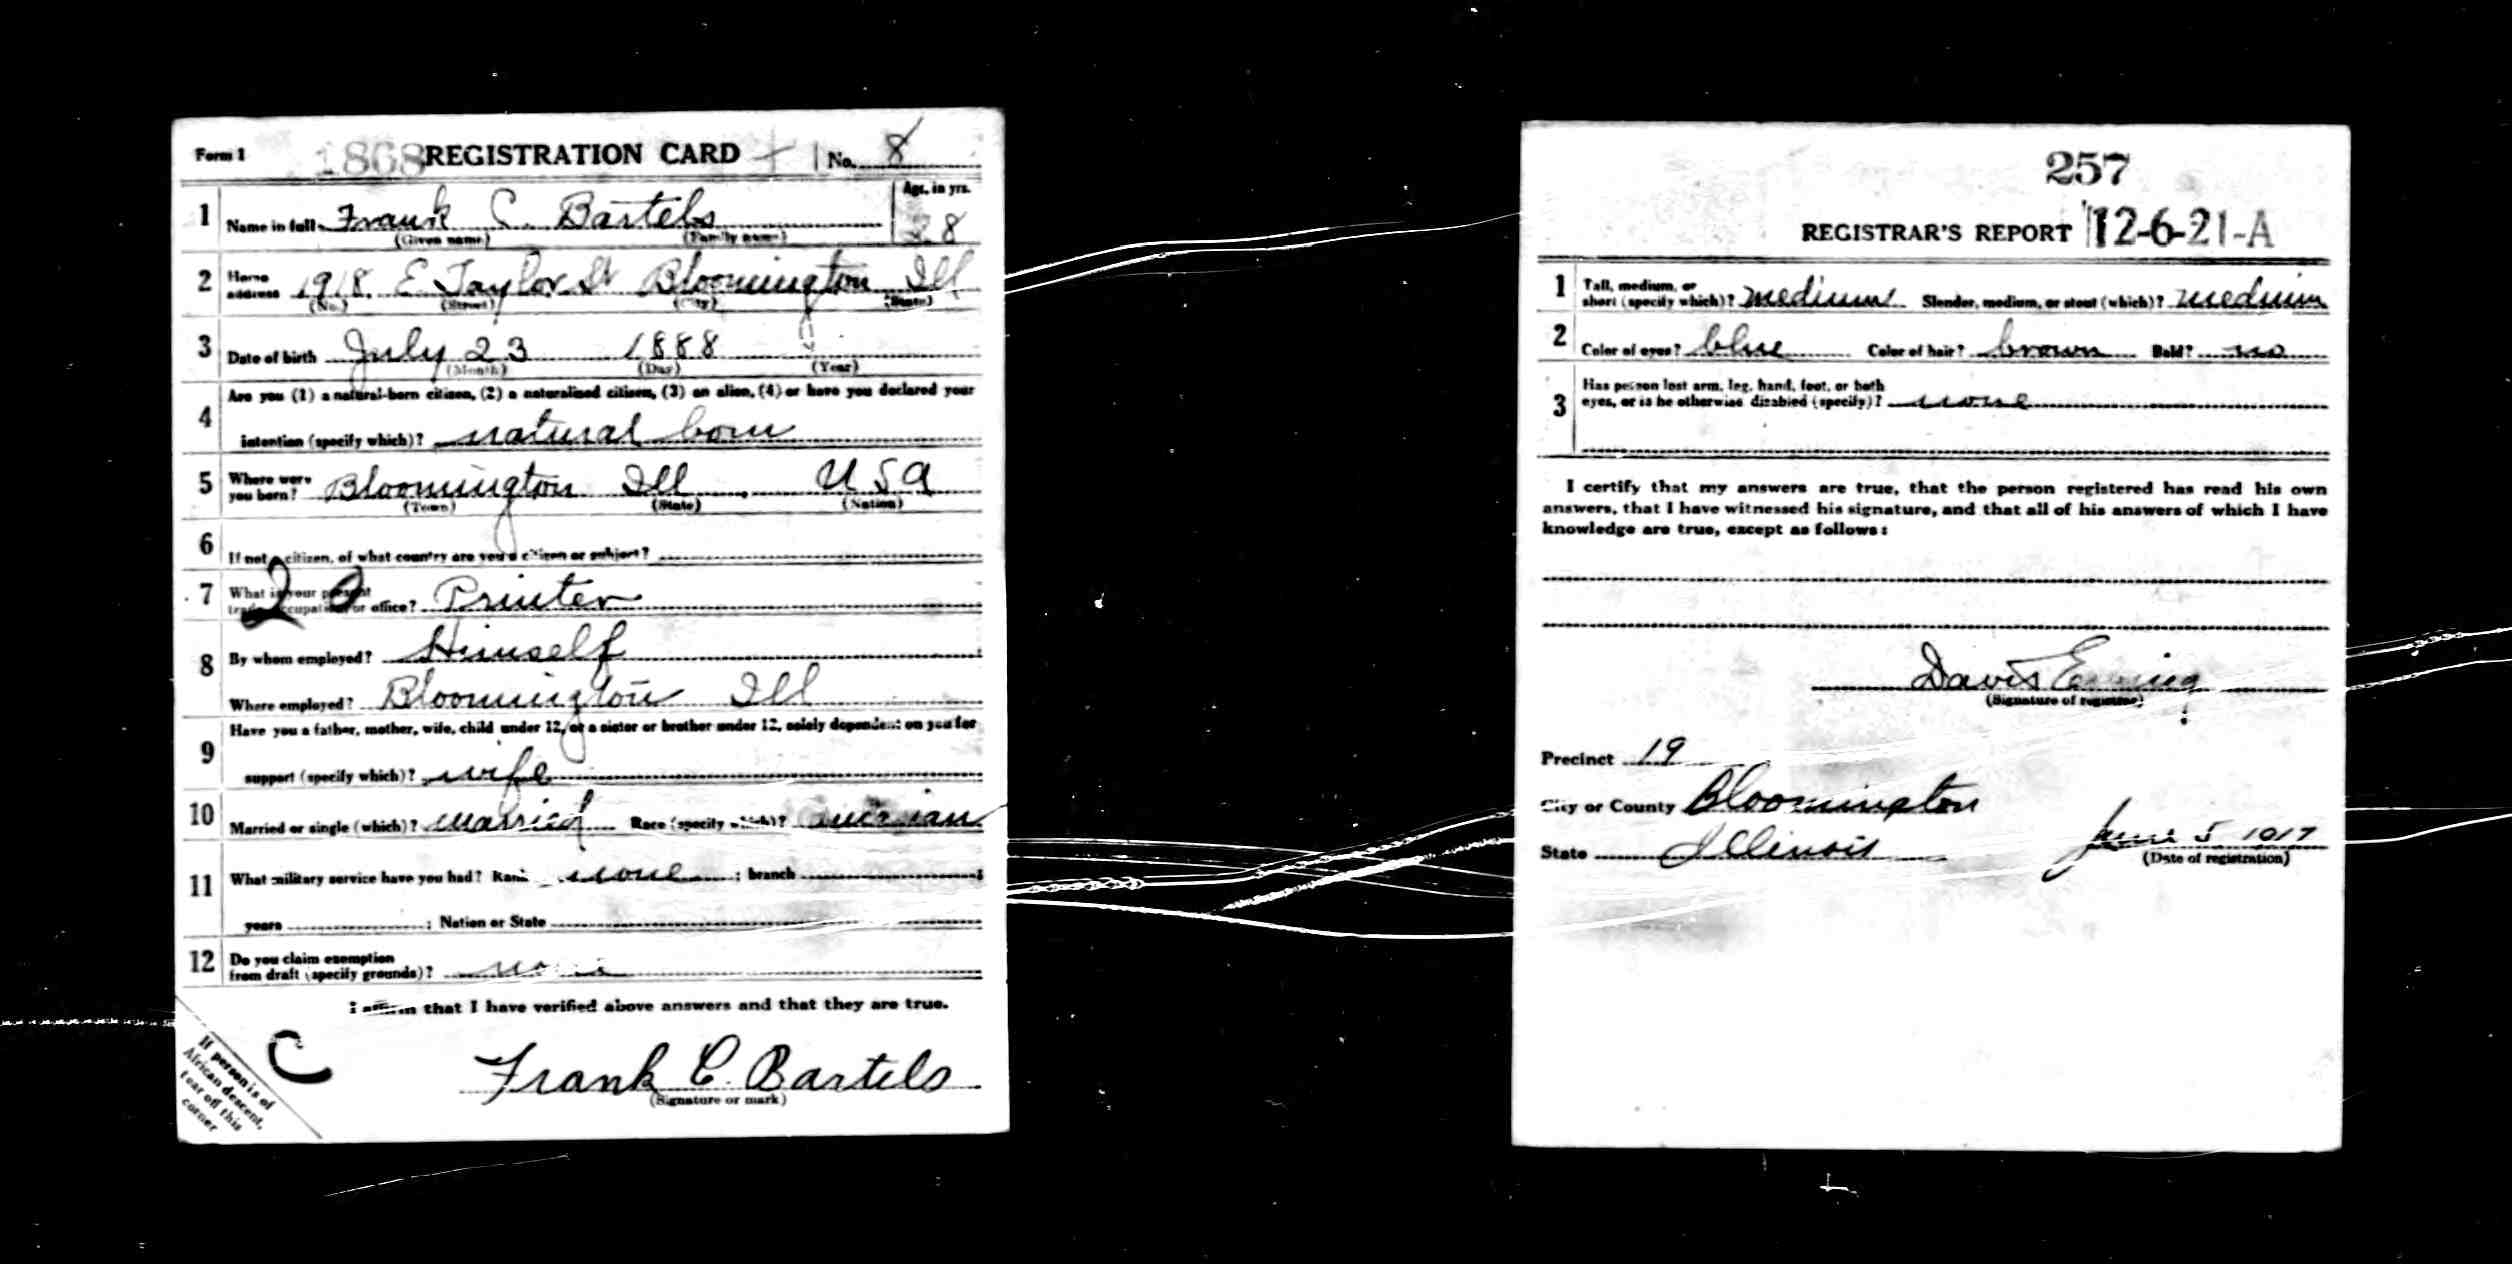 Form 1 1868 REGISTRATION CARD No. 8
1 Name in full Frank C. Bartels Age, in yrs. 28
(Given name) (Family name)
2 Home address 1918 E Taylor St Bloomington Ill
(No.) (Street) (City) (State)
3 Date of birth July 23 1888
(Month) (Day) (Year)
4 Are you (1) a natural-born citizen, (2) a naturalized citizen, (3) an alien, (4) or have you declared your
intention (specify which)? natural born
5 Where were you born? Bloomington Ill USA
(Town) (State) (Nation)
6 If not a citizen, of what country are you a citizen or subject?
7 What is your present
trade, occupation, or office? Printer
20
8 By whom employed? Himself
Where employed? Bloomington Ill
9 Have you a father, mother, wife, child under 12, or a sister or brother under 12, solely dependent on you for
support (specify which)? wife
10 Married or single (which)? married Race (specify which)?
11 What military service have you had? Rank none ; branch ;
years ; Nation or State
12 Do you claim exemption
from draft (specify grounds)? none
I affirm that I have verified above answers and that they are true.
C
Frank C. Bartels
(Signature or mark)
If person is of
African descent,
tear off this
corner
257
REGISTRAR'S REPORT 12-6-21-A
1 Tall, medium, or
short (specify which)? medium Slender, medium, or stout (which)? medium
2 Color of eyes? blue Color of hair? brown Bald? no
3 Has person lost arm, leg, hand, foot, or both
eyes, or is he otherwise disabled (specify)? none
I certify that my answers are true, that the person registered has read his own
answers, that I have witnessed his signature, and that all of his answers of which I have
knowledge are true, except as follows:
Davis Ewing
(Signature of registrar)
Precinct 19
City or County Bloomington
State Illinois June 5 1917
(Date of registration)